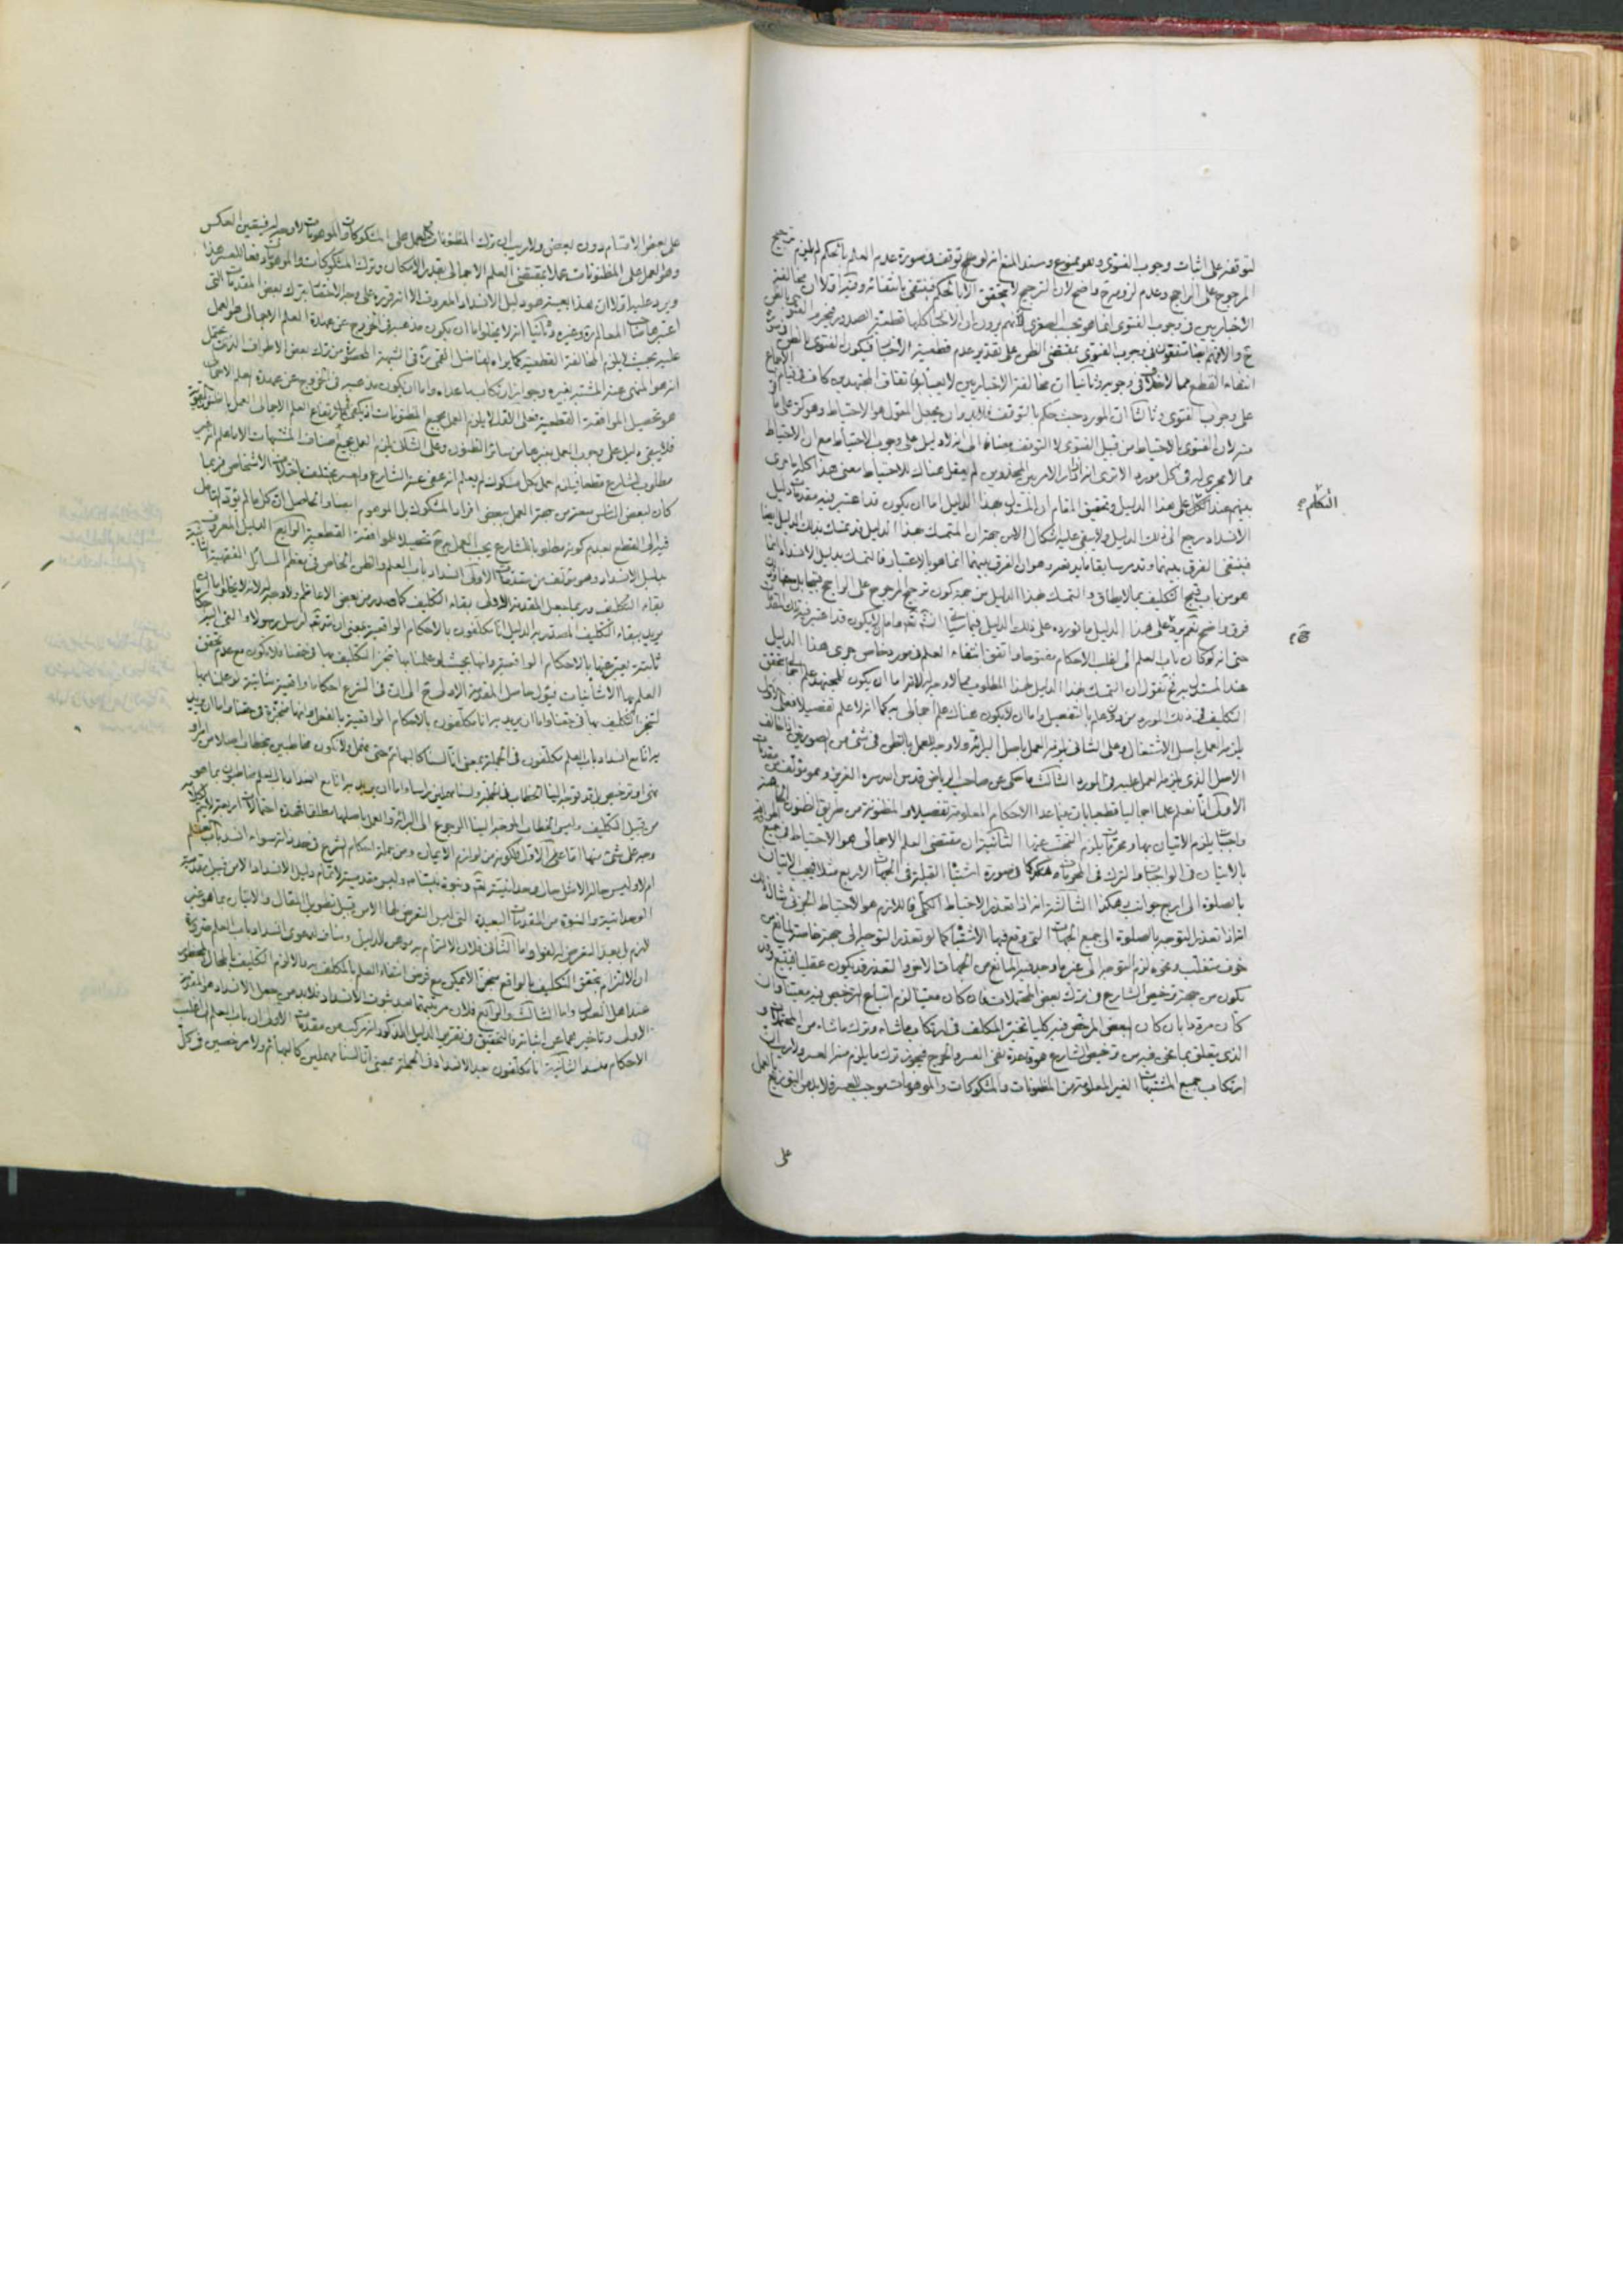 لتوقفه على اثبات وجوب الفتوى وهو ممنوع وسند المنع انه لو توقف في صورة عدم العلم بالحكم لم يلزم ترجيح
المرجوح على الراجح وعدم لزومه ح واضح لان الترجيح لا يتحقق الا بالحكم فينتفى بانتفائه وفيه اولا ان مخالفة
الاخباريين في وجوب الفتوى انما هو بحسب الصغرى لانهم يرون ان الاخبار كلها قطعية الصدور
ح والا فهم ايضا متفقون في وجوب الفتوى بمقتضى الظن على تقدير عدم قطعية الاخبار فيكون الفتوى بالظن
انتفاء القطع مما لا خلاف في وجوبه وثانيا ان مخالفة الاخباريين لا يعبأ بها فاتفاق المجتهدين كاف في قيام الاجماع
على وجوب الفتوى وثالثا ان المورد حيث حكم بالتوقف فلا بد من ان يجعل المعول هو الاحتياط وهو كر على ما
منه لان الفتوى بالاحتياط من قبيل الفتوى لا التوقف مضافا الى انه لا دليل على وجوب الاحتياط مع ان الاحتياط
مما لا يجرى في كل مورد الا ترى انه اذا دار الامر بين المحذورين لم يعقل هناك للاحتياط معنى هذا كله ما جرى
بينهم عند التكلم على هذا الدليل وتحقيق المقام ان المستدل بهذا الدليل اما ان يكون قد اعتبر فيه مقدمات دليل
الانسداد رجع الى ذلك الدليل ولا يبقى عليه اشكال الا من جهة ان المتمسك بهذا الدليل قد تمسك بذلك الدليل ايضا
فينتفى الفرق بينهما وقد مر سابقا ما يدفعه وهو ان الفرق بينهما انما هو بالاعتبار فالتمسك بدليل الانسداد انما
هو من باب قبح التكليف بما لا يطاق والتمسك بهذا الدليل من جهة كون ترجيح المرجوح على الراجح قبيحا
فرق واضح نعم يرد على هذا الدليل ما نورده على ذلك الدليل فيما سيأتى انشاء الله واما ان لا يكون قد اعتبر فيه تلك المقدمات
حتى انه لو كان باب العلم الى اغلب الاحكام مفتوحا واتفق انتفاء العلم في مورد خاص جرى هذا الدليل
عند المستدل به فح نقول ان التمسك بهذا الدليل لهذا المطلوب مما لا وجه له لانه اما ان يكون للمجتهد علم اجمالى بتحقق
التكليف في ذلك المورد من دون علم بالتفصيل واما ان لا يكون هناك علم اجمالى به كما انه لا علم تفصيلا فعلى الاول
يلزم العمل باصل الاشتغال وعلى الثانى يلزم العمل باصل البرائة ولا وجه للعمل بالظن في شئ من الصورتين اذا خالف
الاصل الذى يلزم العمل عليه في المورد الثالث ما حكى عن صاحب الرياض قدس الله سره العزيز وهو مؤلف من مقدمات
الاولى انا نعلم علما اجماليا قطعيا بان فيما عدا الاحكام المعلومة تفصيلا والمظنونة من طريق الظنون الخاصة
واجبات يلزم الاتيان بها ومحرمات يلزم التجنب عنها الثانية ان مقتضى العلم الاجمالى هو الاحتياط في جميع
بالاتيان في الواجبات والترك في المحرمات كما في صورة اشتباه القبلة في الجهات الاربع مثلا فيجب الاتيان
بالصلوة الى اربع جوانب وهكذا الثالثة انه اذا تعذر الاحتياط الكلى فاللازم هو الاحتياط الجزئى مثال ذلك
انه اذا تعذر التوجه بالصلوة الى جميع الجهات التى وقع فيها الاشتباه كما لو تعذر التوجه الى جهة خاصة لمانع من
خوف متغلب ونحوه لزم التوجه الى غير ما وجد فيه المانع من الجهات الاخر والتعذر قد يكون عقليا فيتبع وقد
يكون من جهة ترخيص الشارع في ترك بعض المحتملات فان كان معينا لزم اتباع الترخيص فيه معينا وان
كان مرددا بان كان البعض المرخص فيه كليا تخير المكلف في ارتكاب ما شاء وترك ما شاء من المحتملات و
الذى يتعلق بما نحن فيه من ترخيص الشارع هو قاعدة نفى العسر والحرج فيجوز ترك ما يلزم منه العسر ولا ريب ان
ارتكاب جميع المشتبهات الغير المعلومة من المظنونات والمشكوكات والموهومات موجب للعسر فلا بد من التوزيع العمل
على
التكلم
على بعض الاقسام دون بعض ولا ريب ان ترك المظنونات والعمل على المشكوكات والموهومات لا وجه له فيتعين العكس
وهو العمل على المظنونات عملا بمقتضى العلم الاجمالى بقدر الامكان وترك المشكوكات والموهومات دفعا للعسر هذا
ويرد عليه اولا ان هذا بعينه هو دليل الانسداد المعروف الا انه قرره على وجه الاختصار بترك بعض المقدمات التى
اعتبرها صاحب المعالم ره وغيره وثانيا انه لا يخلو اما ان يكون مذهبه في الخروج عن عهدة العلم الاجمالى هو العمل
عليه بحيث لا يلزم المخالفة القطعية كما يراه الفاضل القمى ره في الشبهة المحصورة من ترك بعض الاطراف الذى يحتمل
انه هو المنهى عنه المشتبه بغيره وجواز ارتكاب ما عداه واما ان يكون مذهبه في الخروج عن عهدة العلم الاجمالى
هو تحصيل الموافقة القطعية فعلى الاول لا يلزم العمل بجميع المظنونات
فلا يبقى دليل على وجوب العمل بغيرها من سائر الظنون وعلى الثانى يلزم العمل بجميع اصناف المشتبهات الا ما علم انه غير
مطلوب للشارع قطعا فيلزم العمل بكل مشكوك لم يعلم انه عفى عنه الشارع والعسر يختلف باختلاف الاشخاص فربما
كان لبعض الناس عسر من جهة العمل ببعض افراد المشكوك بل الموهوم ايضا والحاصل ان كل ما لم يؤد العمل
فيه الى القطع بعدم كونه مطلوبا للشارع يجب العمل به ح تحصيلا للموافقة القطعية الرابع الدليل المعروف
بدليل الانسداد وهو مؤلف من مقدمات الاولى انسداد باب العلم والظن الخاص في معظم المسائل الفقهية الثانية
بقاء التكليف وربما يجعل المقدمة الاولى بقاء التكليف كما صدر من بعض الاعاظم ولا وجه له لانه لا يخلو اما ان
يريد ببقاء التكليف المستدرج في الدليل انا مكلفون بالاحكام الواقعية بمعنى ان الله تعالى ارسل رسولا والقى اليه احكاما
ثابتة يعبر عنها بالاحكام الواقعية وانها بحيث لو علمنا بها تنجز التكليف بها في حقنا ولا يكون مع عدم تحقق
العلم بها الا شأنيات فيؤل حاصل المقدمة الاولى ح الى ان في الشرع احكاما واقعية شأنية لو علمناها
لتنجز التكليف بها في حقنا واما ان يريد به انا مكلفون بالاحكام الواقعية بالفعل وانها منجزة في حقنا واما ان يريد
به انا مع انسداد باب العلم مكلفون في الجملة بمعنى انا لسنا كالبهائم حتى نهمل ولا نكون مخاطبين بخطاب اصلا من امر او
نهى او ترخيص بل قد توجه الينا الخطاب في الجملة ولسنا مهملين راسا واما ان يريد به انا مع انسداد باب العلم مخاطبون بما هو
من قبيل التكليف وليس الخطاب الموجه الينا الرجوع الى البرائة والعمل باصلها مطلقا فهذه احتمالات اربعة
وجه على شئ منها اما على الاول فلكونه من لوازم الايمان ومن جملة احكام الشرع في حد ذاته سواء انسد باب العلم
ام لا وليس حاله الا مثل حال وحدانيته تعالى ونبوة نبينا ص وليس مقدمية لاتمام دليل الانسداد الا من قبيل مقدمية
الوحدانية والنبوة من المقدمات البعيدة التى ليس التعرض لها الا من قبيل تطويل المقال والاتيان بما هو غير
لازم بل يعد التعرض له لغوا واما الثانى فلان الالتزام به موهن للدليل ومناف لدعوى انسداد باب العلم ضرورة
ان الالتزام بتحقق التكليف بالواقع منجزا لا يمكن مع فرض انتفاء العلم بالمكلف به والا لزم التكليف بالمحال المحظور
عند اهل العدل واما الثالث والرابع فلان مرتبتهما بعد ثبوت الانسداد فلا بد من جعل الانسداد هو المقدمة
الاولى وتأخيرهما عن اثباته فالتحقيق في تقرير الدليل المذكور انه مركب من مقدمات الاولى ان باب العلم الى اغلب
الاحكام منسد الثانية انا مكلفون حين الانسداد في الجملة بمعنى انا لسنا مهملين كالبهائم ولا مرخصين في كل